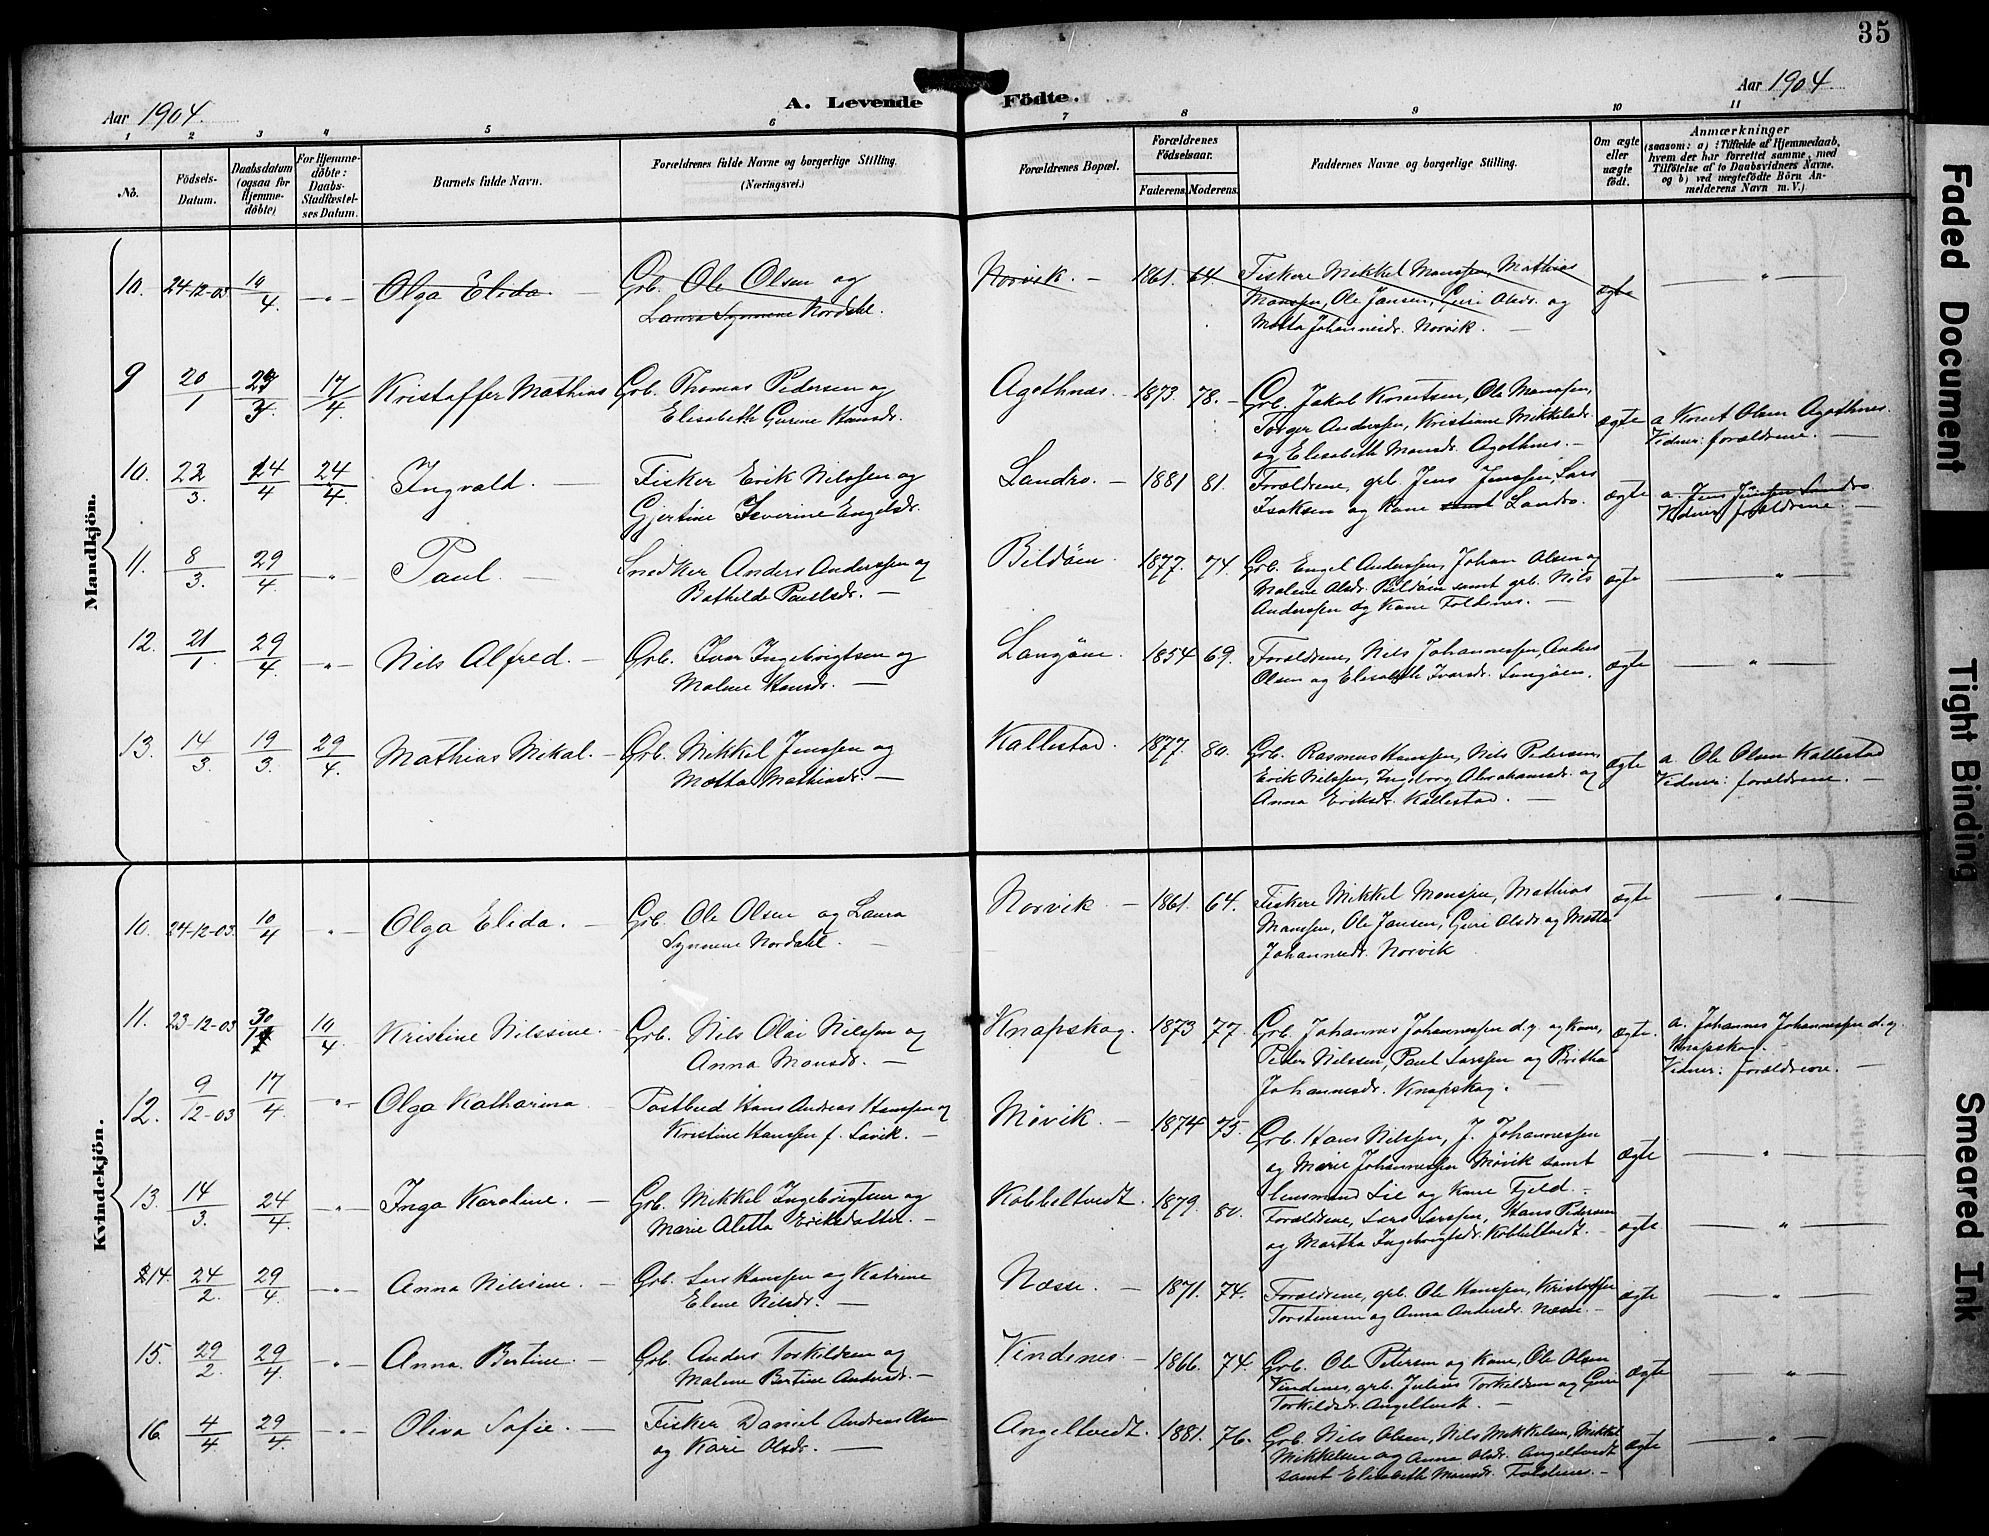 35
Aar 1904.
A. Levende Födte.
Aar 1904
1 2 3 4 5 6 7 8 9 10 11
No.
Födsels-
Datum.
Daabsdatum
(ogsaa for
Hjemme-
döbte)
For Hjemme-
döbte:
Daabs-
Stadfæstel-
ses Datum.
Barnets fulde Navn.
Forældrenes fulde Navne og borgerlige Stilling.
(Næringsvei.)
Forældrenes Bopæl.
Forældrenes
Födselsaar.
Faderens. Moderens.
Faddernes Navne og borgerlige Stilling.
Om ægte
eller
uægte
födt.
Anmærkninger
(saasom: a) i Tilfælde af Hjemmedaab,
hvem der har forrettet samme, med
Tilföielse af to Daabsvidners Navne,
og b) ved uægtefödte Börn An-
melderens Navn m. V.)
Mandkjön.
10. 24-12-03 10/4. -"- Olga Elida.
Grb. Ole Olsen og
Laura Synnene Nordahl.
Norvik. - 1861. 64.
Fiskere Mikkel Monssen, Mathias
Monssen, Ole Jansen, Guri Olsdr. og
Metta Johannesdr. Norvik. -
ægte "
9 20/1 27/3 17/4. Kristoffer Mathias
Grb. Thomas Pedersen og
Elisabeth Gurine Hansdr.
Agothnes. - 1873. 78. -
Grb. Jakob Knutsen, Ole Monssen,
Torger Anderssen, Kristiane Mikkelsdr.
og Elisabeth Monsdr. Agothnes. -
ægte
a Knut Olsen Agothnes.
Vidner: forældrene. -
10. 22/3. 24/4 24/4. Ingvald. -
Fisker Erik Nilssen og
Gjertine Severine Engelsdr.
Landro. - 1881 81.
Forældrene, grb. Jens Jenssen, Lars
Isaksen og Kone samt Landro.
ægte
a. Jens Jenssen Landro.
Vidner: forældrene. -
11. 8/3. 29/4 -"- Paul. -
Snedker Anders Anderssen og
Bathilde Paulsdr. -
Bildöen. 1877. 74.
Grb. Engel Anderssen, Johan Olsen og
Malene Olsdr. Bildöen samt grb. Nils
Anderssen og Kone Foldenes. -
ægte "
12. 21/1. 29/4. -"- Nils Alfred. -
Grb. Ivar Ingebrigtsen og
Malene Hansdr. -
Langöen. 1854 69.
Forældrene, Nils Johannessen, Anders
Olsen og Elisabeth Ivarsdr. Langöen.
ægte "
13. 14/3. 19/3. 29/4. Mathias Mikal. -
Grb. Mikkel Jenssen og
Metta Mathiasdr. -
Kallestad. - 1877. 80.
Grb. Rasmus Hanssen, Nils Pedersen,
Erik Nilssen, Ingeborg Abrahamsdr. og
Anna Eriksdr. Kallestad. -
ægte
a. Ole Olsen Kallestad
Vidner: forældrene. -
Kvindekjön.
10. 24-12-03. 10/4 -"- Olga Elida. -
Grb. Ole Olsen og Laura
Synnene Nordahl. -
Norvik. - 1861. 64.
Fiskere Mikkel Monssen, Mathias
Monssen, Ole Jansen, Guri Olsdr og Metta
Johannesdr. Norvik
ægte "
11. 23-12-03 30/1 10/4. Kristine Nilssine. -
Grb. Nils Olai Nilssen og
Anna Monsdr. -
Knapskog. 1873 77.
Grb. Johannes Johannessen d.y. og Kone,
Peder Nilssen, Paul Larssen og Britha
Johannesdr. Knapskog. -
ægte.
a. Johannes Johannessen d.y.
Knapskog. -
Vidner: forældrene. -
12. 9/12-03 17/4. -"- Olga Katharina
Postbud Hans Andreas Hanssen og
Kristine Hanssen f. Lavik. -
Mövik. - 1874 75.
Grb. Hans Nilssen, J. Johannessen
og Marie Johannessen Mövik samt
lensmand Lie og Kone Fjeld. -
ægte "
13. 14/3. 24/4. -"- Inga Karoline. -
Grb. Mikkel Ingebrigtsen og
Marie Aletta Eriksdatter. -
Kobbeltvedt. 1879. 80.
Forældrene, Lars Larssen, Hans Pedersen
og Martha Ingebrigtsdr. Kobbeltvedt. -
ægte "
14. 24/2. 29/4. -"- Anna Nilssine. -
Grb. Lars Hanssen og Katrine
Elene Nilsdr. -
Næsse. - 1871. 74.
Forældrene, grb. Ole Hanssen, Kristoffer
Torstensen og Anna Andersdr. Næsse. -
ægte "
15. 29/2. 29/4. -"- Anna Bertine. -
Grb. Anders Torkildsen og
Malene Bertine Andersdr. -
Vindenes. - 1866. 74.
Grb. Ole Petersen og Kone, Ole Olsen
Vindenes, grb. Julius Torkildsen og Guri
Torkildsdr. Angeltvedt. -
ægte "
16. 4/4 29/4. -"- Oliva Sofie. -
Fisker Daniel Andreas Olsen
og Kari Olsdr. -
Angeltvedt. 1881. 76.
Grb. Nils Olsen, Nils Mikkelsen, Mikkel
Mikkelsen og Anna Olsdr. Angeltvedt
samt Elisabeth Monsdr. Foldenes. -
ægte "
Faded Document
Tight Binding
Smeared Ink